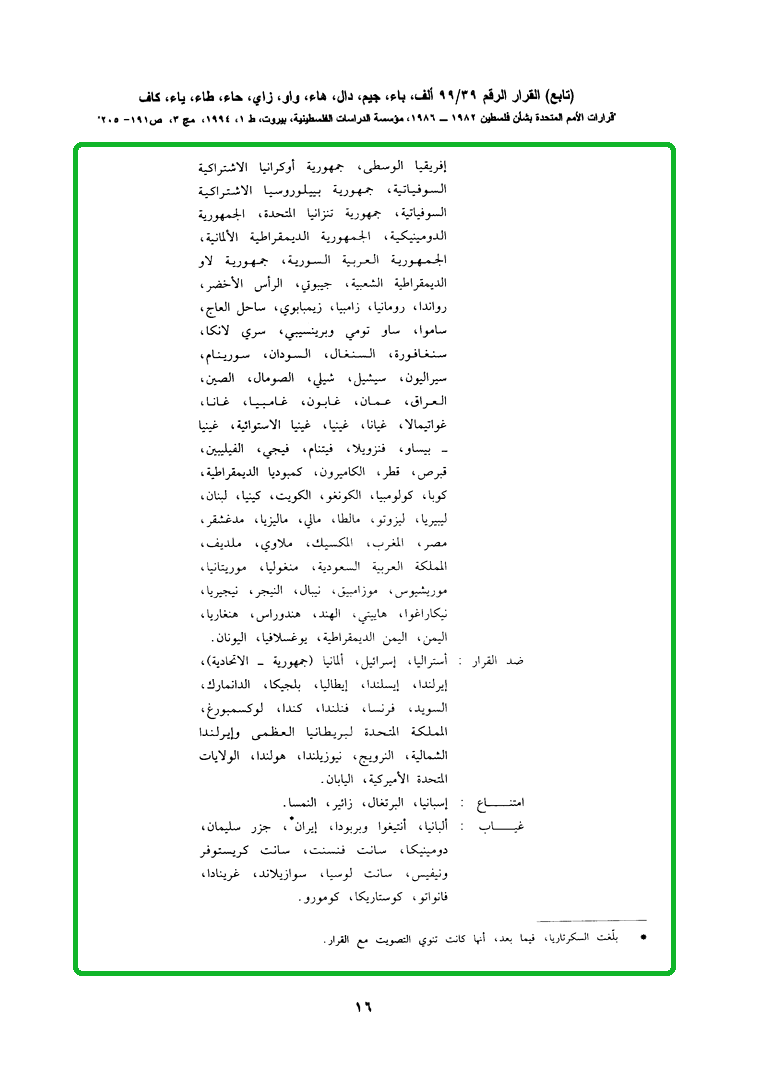 (تابع) القرار الرقم ٩٩/٣٩ ألف، باء، جيم، دال، هاء، واو، زاي، حاء، طاء، ياء، كاف
"قرارات الأمم المتحدة بشأن فلسطين ١٩٨٢ ــ ١٩٨٦، مؤسسة الدراسات الفلسطينية، بيروت، ط ١، ١٩٩٤، مج ٣، ص١٩١- ٢٠٥"
إفريقيا الوسطى، جمهورية أوكرانيا الاشتراكية
السوفياتية، جمهورية بييلوروسيا الاشتراكية
السوفياتية، جمهورية تنزانيا المتحدة، الجمهورية
الدومينيكية، الجمهورية الديمقراطية الألمانية،
الجمهورية العربية السورية، جمهورية لاو
الديمقراطية الشعبية، جيبوتي، الرأس الأخضر،
رواندا، رومانيا، زامبيا، زيمبابوي، ساحل العاج،
ساموا، ساو تومي وبرينسيبي، سري لانكا،
سنغافورة، السنغال، السودان، سورينام،
سيراليون، سيشيل، شيلي، الصومال، الصين،
العراق، عمان، غابون، غامبيا، غانا،
غواتيمالا، غيانا، غينيا، غينيا الاستوائية، غينيا
ـ بيساو، فنزويلا، فيتنام، فيجي، الفيليبين،
قبرص، قطر، الكاميرون، كمبوديا الديمقراطية،
كوبا، كولومبيا، الكونغو، الكويت، كينيا، لبنان،
ليبيريا، ليزوتو، مالطا، مالي، ماليزيا، مدغشقر،
مصر، المغرب، المكسيك، ملاوي، ملديف،
المملكة العربية السعودية، منغوليا، موريتانيا،
موريشيوس، موزامبيق، نيبال، النيجر، نيجيريا،
نيكاراغوا، هاييتي، الهند، هندوراس، هنغاريا،
اليمن، اليمن الديمقراطية، يوغسلافيا، اليونان.
ضد القرار : أستراليا، إسرائيل، ألمانيا (جمهورية ــ الاتحادية)،
إيرلندا، إيسلندا، إيطاليا، بلجيكا، الدانمارك،
السويد، فرنسا، فنلندا، كندا، لوكسمبورغ،
المملكة المتحدة لبريطانيا العظمى وإيرلندا
الشمالية، النرويج، نيوزيلندا، هولندا، الولايات
المتحدة الأميركية، اليابان.
امتنـــــاع : إسبانيا، البرتغال، زائير، النمسا.
غيـــــاب : ألبانيا، أنتيغوا وبربودا، إيران*، جزر سليمان،
دومينيكا، سانت فنسنت، سانت كريستوفر
ونيفيس، سانت لوسيا، سوازيلاند، غرينادا،
فانواتو، كوستاريكا، كومورو.
* بلّغت السكرتاريا، فيما بعد، أنها كانت تنوي التصويت مع القرار.
١٦